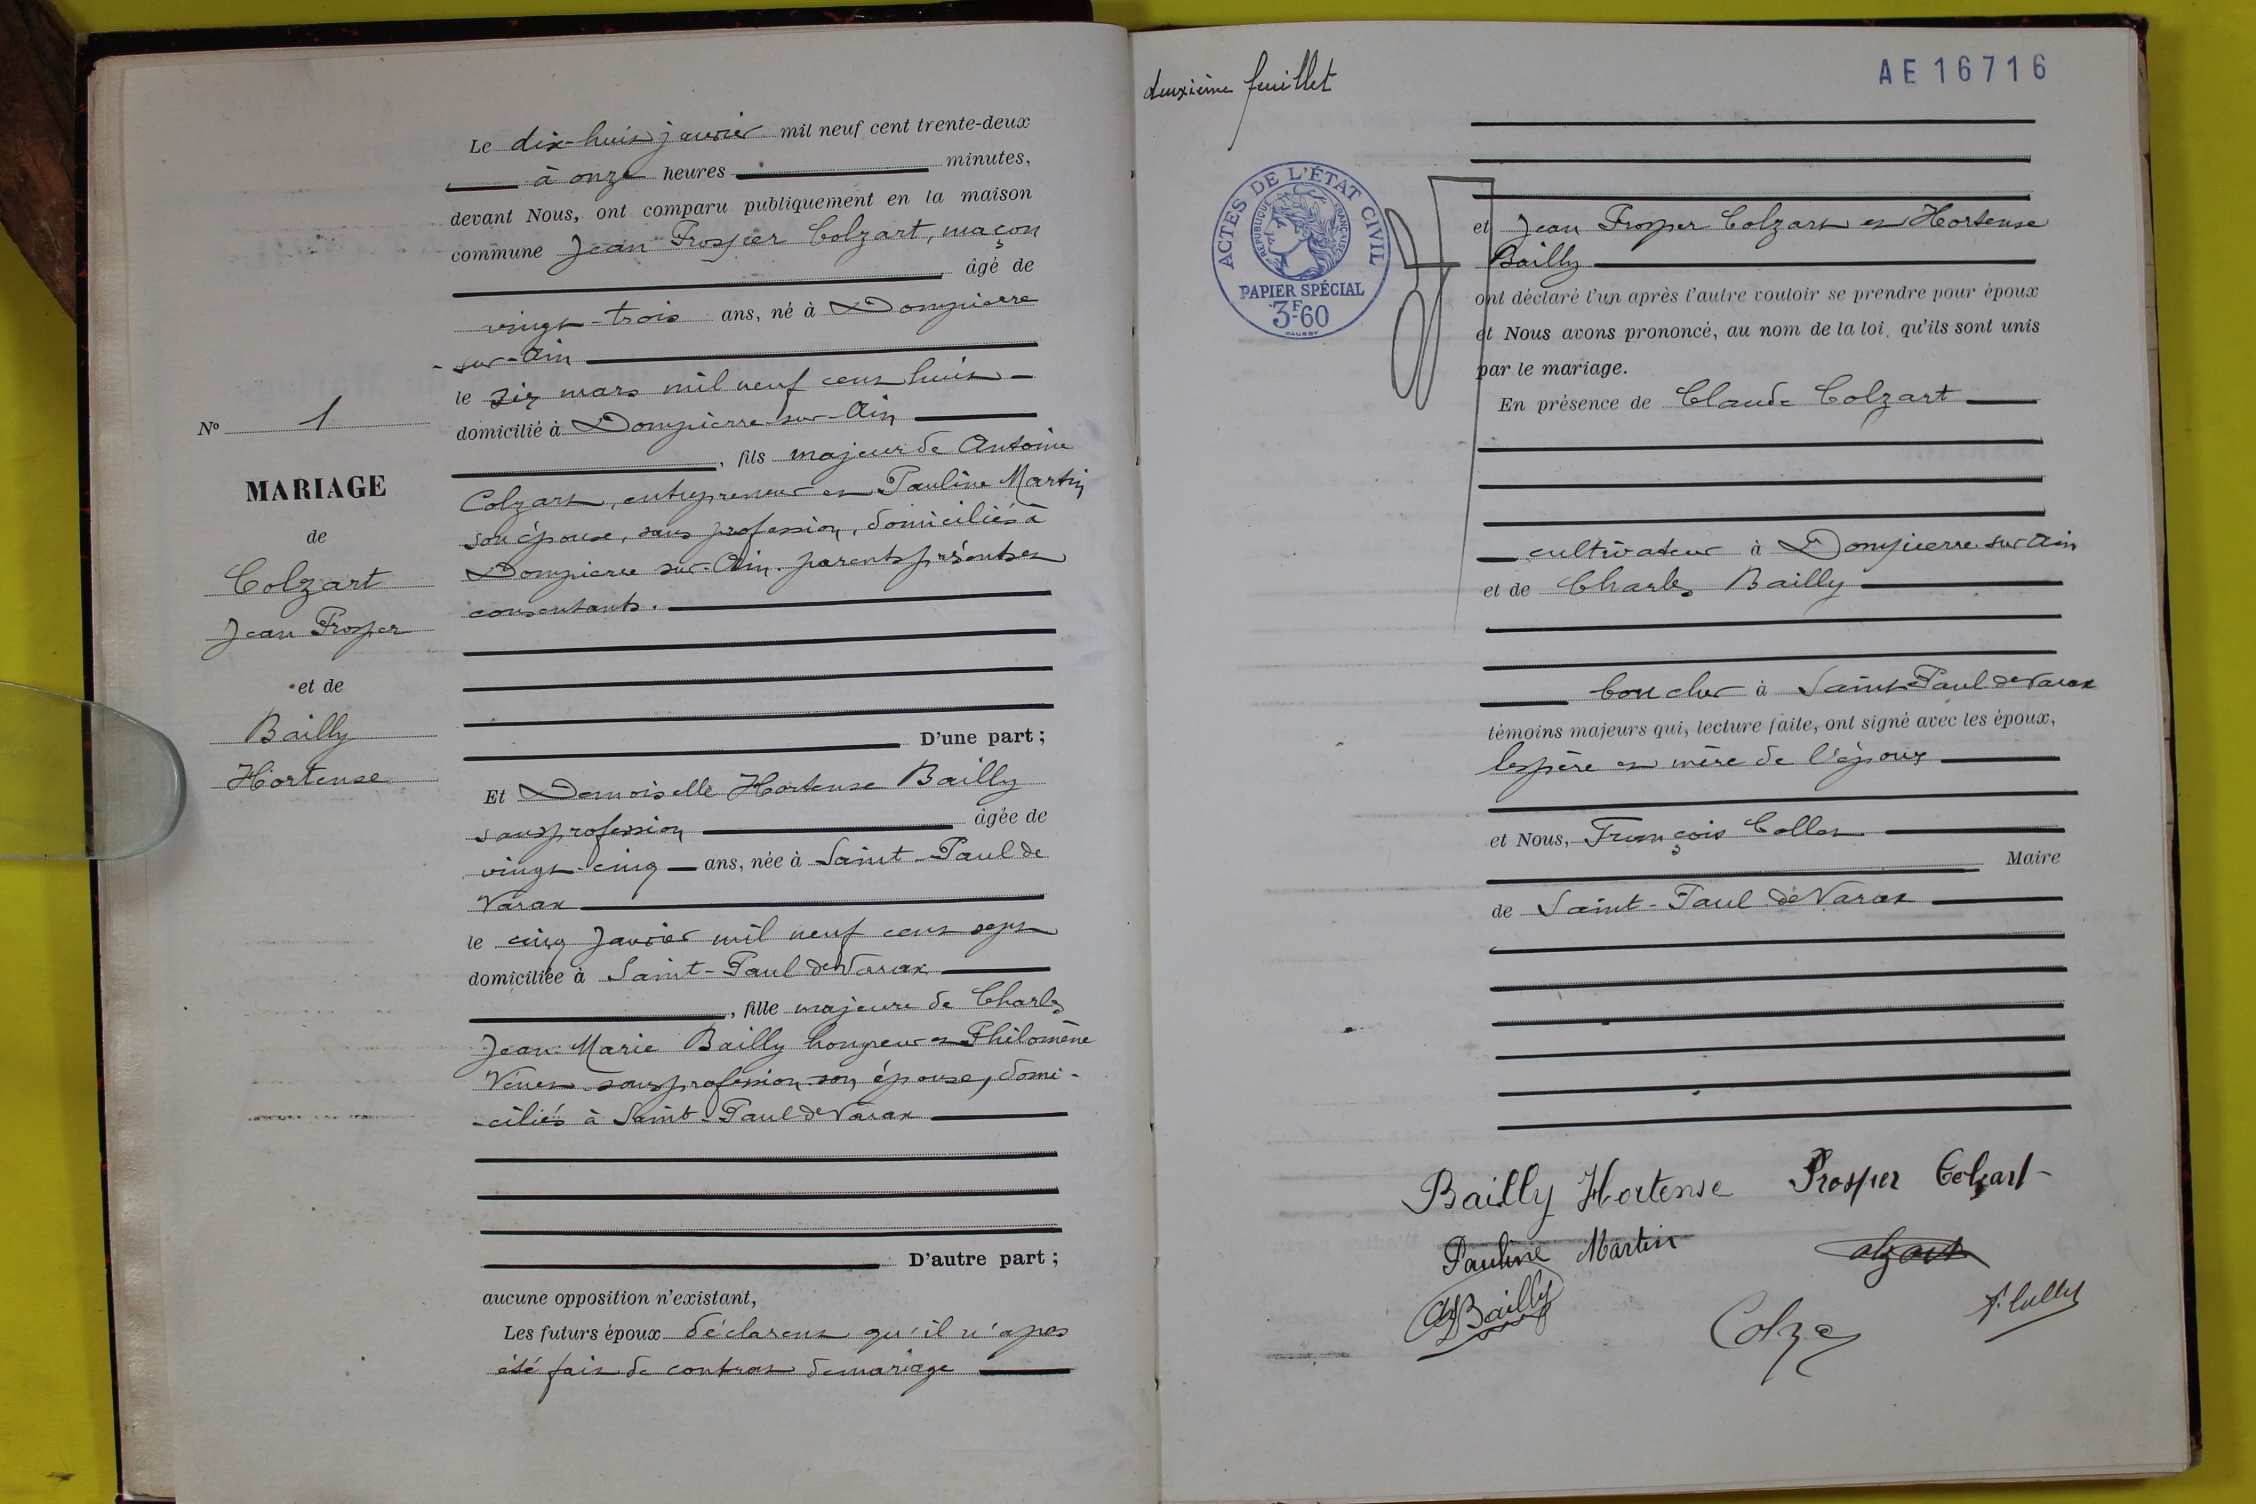 N° 1
MARIAGE
de
Colzart
Jean Prosper
et de
Bailly
Hortense
Le dix-huit janvier mil neuf cent trente-deux
à onze heures minutes,
devant Nous, ont comparu publiquement en la maison
commune Jean Prosper Colzart, maçon
âgé de
vingt-trois ans, né à Dompierre
sur-Ain
le six mars mil neuf cent huit
domicilié à Dompierre-sur-Ain
, fils majeur de Antoine
Colzart, entrepreneur et Pauline Martin
son épouse, sans profession, domiciliés à
Dompierre sur-Ain. parents présents et
consentants.
D'une part ;
Et Demoiselle Hortense Bailly
sans profession âgée de
vingt-cinq ans, née à Saint-Paul de
Varax
le cinq Janvier mil neuf cent sept
domiciliée à Saint-Paul de Varax
, fille majeure de Charles
Jean-Marie Bailly hongreur et Philomène
sans profession son épouse, domi-
-ciliés à Saint-Paul de Varax
D'autre part ;
aucune opposition n'existant,
Les futurs époux déclarent qu'il n'a pas
été fait de contrat de mariage
deuxième feuillet
AE 16716
ACTES DE L'ÉTAT CIVIL
RÉPUBLIQUE FRANÇAISE
PAPIER SPÉCIAL
3F60
et Jean Prosper Colzart et Hortense
Bailly
ont déclaré l'un après l'autre vouloir se prendre pour époux
et Nous avons prononcé, au nom de la loi, qu'ils sont unis
par le mariage.
En présence de Claude Colzart
cultivateur à Dompierre sur Ain
et de Charles Bailly
boucher à Saint-Paul de Varax
témoins majeurs qui, lecture faite, ont signé avec les époux,
les père et mère de l'époux
et Nous, François Collet
Maire
de Saint-Paul de Varax
Bailly Hortense Prosper Colzart
Pauline Martin Colzart
Bailly Colza F. Collet